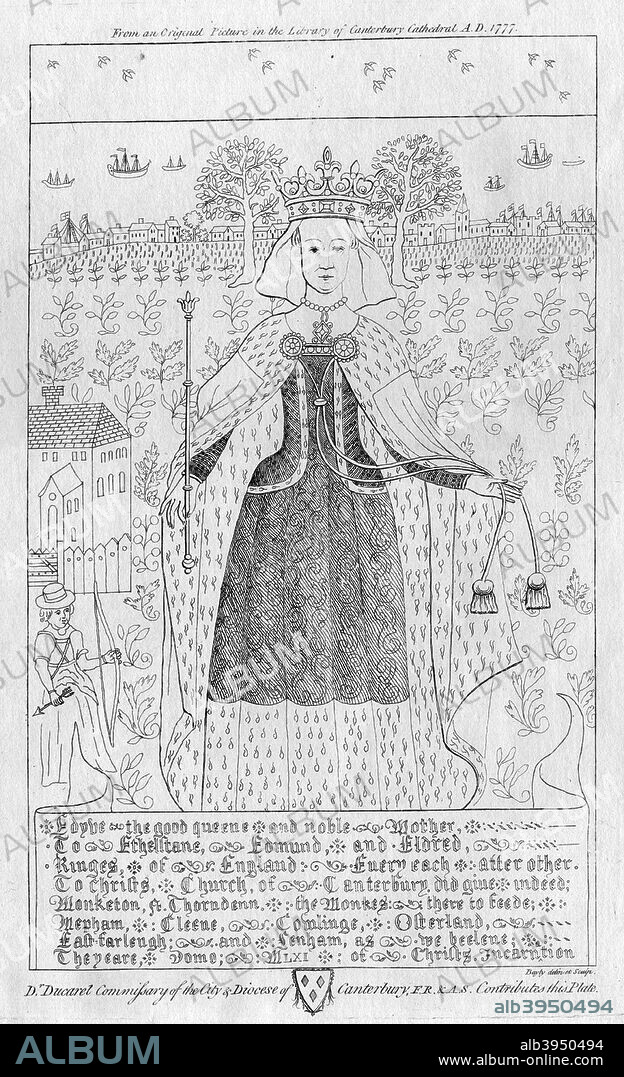 From an Original Picture in the Library of Canterbury Cathedral A.D. 1777.
Edyve the good queene and noble Mother,
To Ethelstane, Edmund, and Eldred,
Kinges, of England: Euery each after other.
To christs, Church, of Canterbury, did giue indeed;
Monketon, & Thorndenn, the Monkes there to feede;
Mepham, Cleene, Cowlinge, Osterland,
East farleugh; and Lenham, as we beleeue;
The yeare, Domo; MLXI of Christs, Incarntion
Bayly delin et Sculp.
Dr. Ducarel Commissary of the City & Diocese of Canterbury, F.R. & A.S. Contributes this Plate.
ALBUM
alb3950494
ALBUM
alb3950494
www.album-online.com